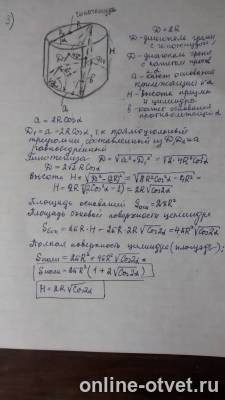 3)
гипотенуза
D = 2R
D - диагональ грани
с гипотенузой
D₁ - диагональ грани
с катетом против
∠α
a - катет основания
прилежащий к ∠α
H - высота призмы
и цилиндра
в - катет основания
противолежащий ∠α
H
a
a = 2R Cosα
D₁ = a = 2R Cosα, т.к. прямоугольный
треугольн. составленный из D, D₁, a
равнобедренный
Гипотенуза D = √a² + D₁² =
D = 2√2 R Cosα
Высота H = √D² - 4R² = √8R² Cos²α - 4R² =
H = 2R √(2Cos²α - 1) = 2R √Cos2α
Площадь основания Sосн = 2πR²
Площадь боковой поверхности цилиндра
Sбок = 2πR · H = 2πR · 2R √Cos2α = 4πR² √Cos2α
Полная поверхность цилиндра (площадь):
Sполн = 2πR² + 4πR² √Cos2α =
Sполн = 2πR² (1 + 2 √Cos2α)
H = 2R √Cos2α
online-otvet.ru